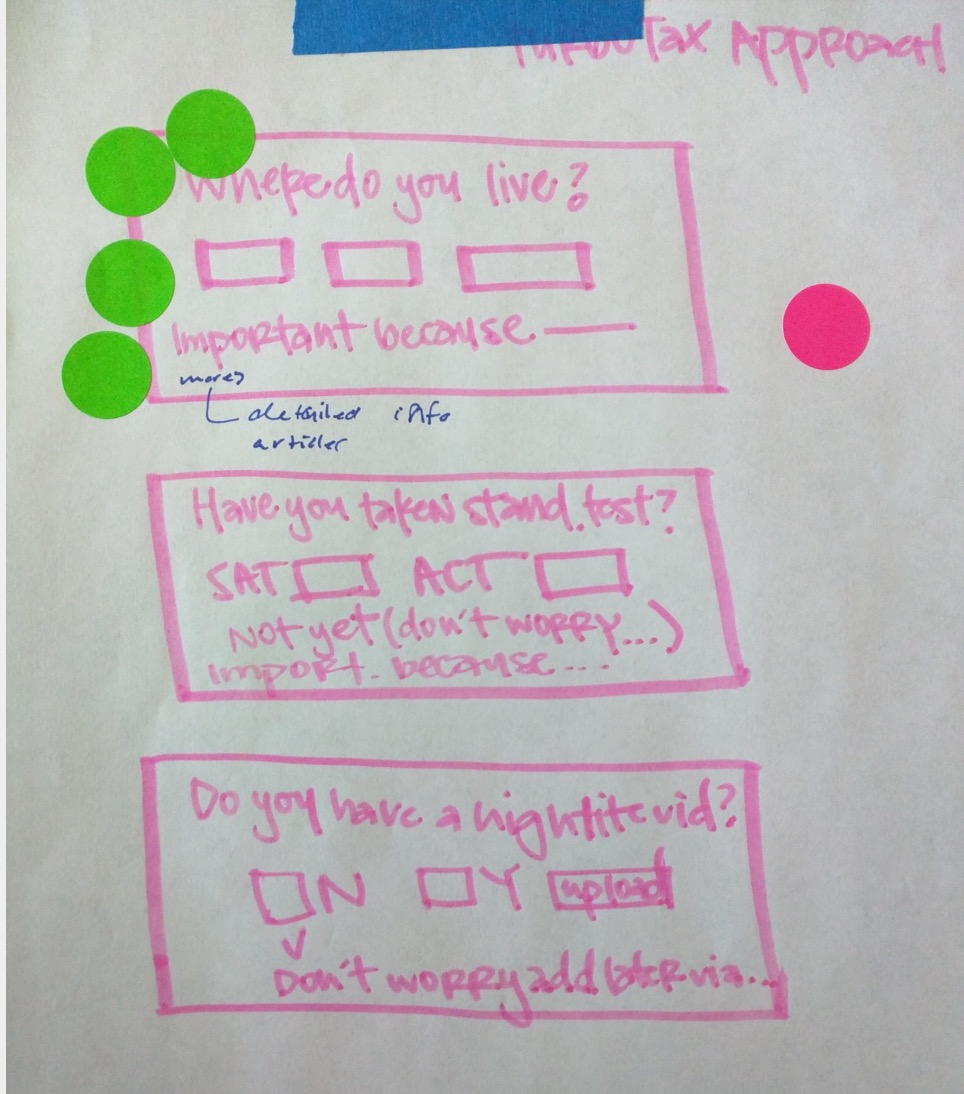 TurboTax Approach
Where do you live?
Important because
more?
detailed info
articles
Have you taken stand. test?
SAT ACT
Not yet (don't worry...)
import. because...
Do you have a highlite vid?
N Y upload
Don't worry add later via...